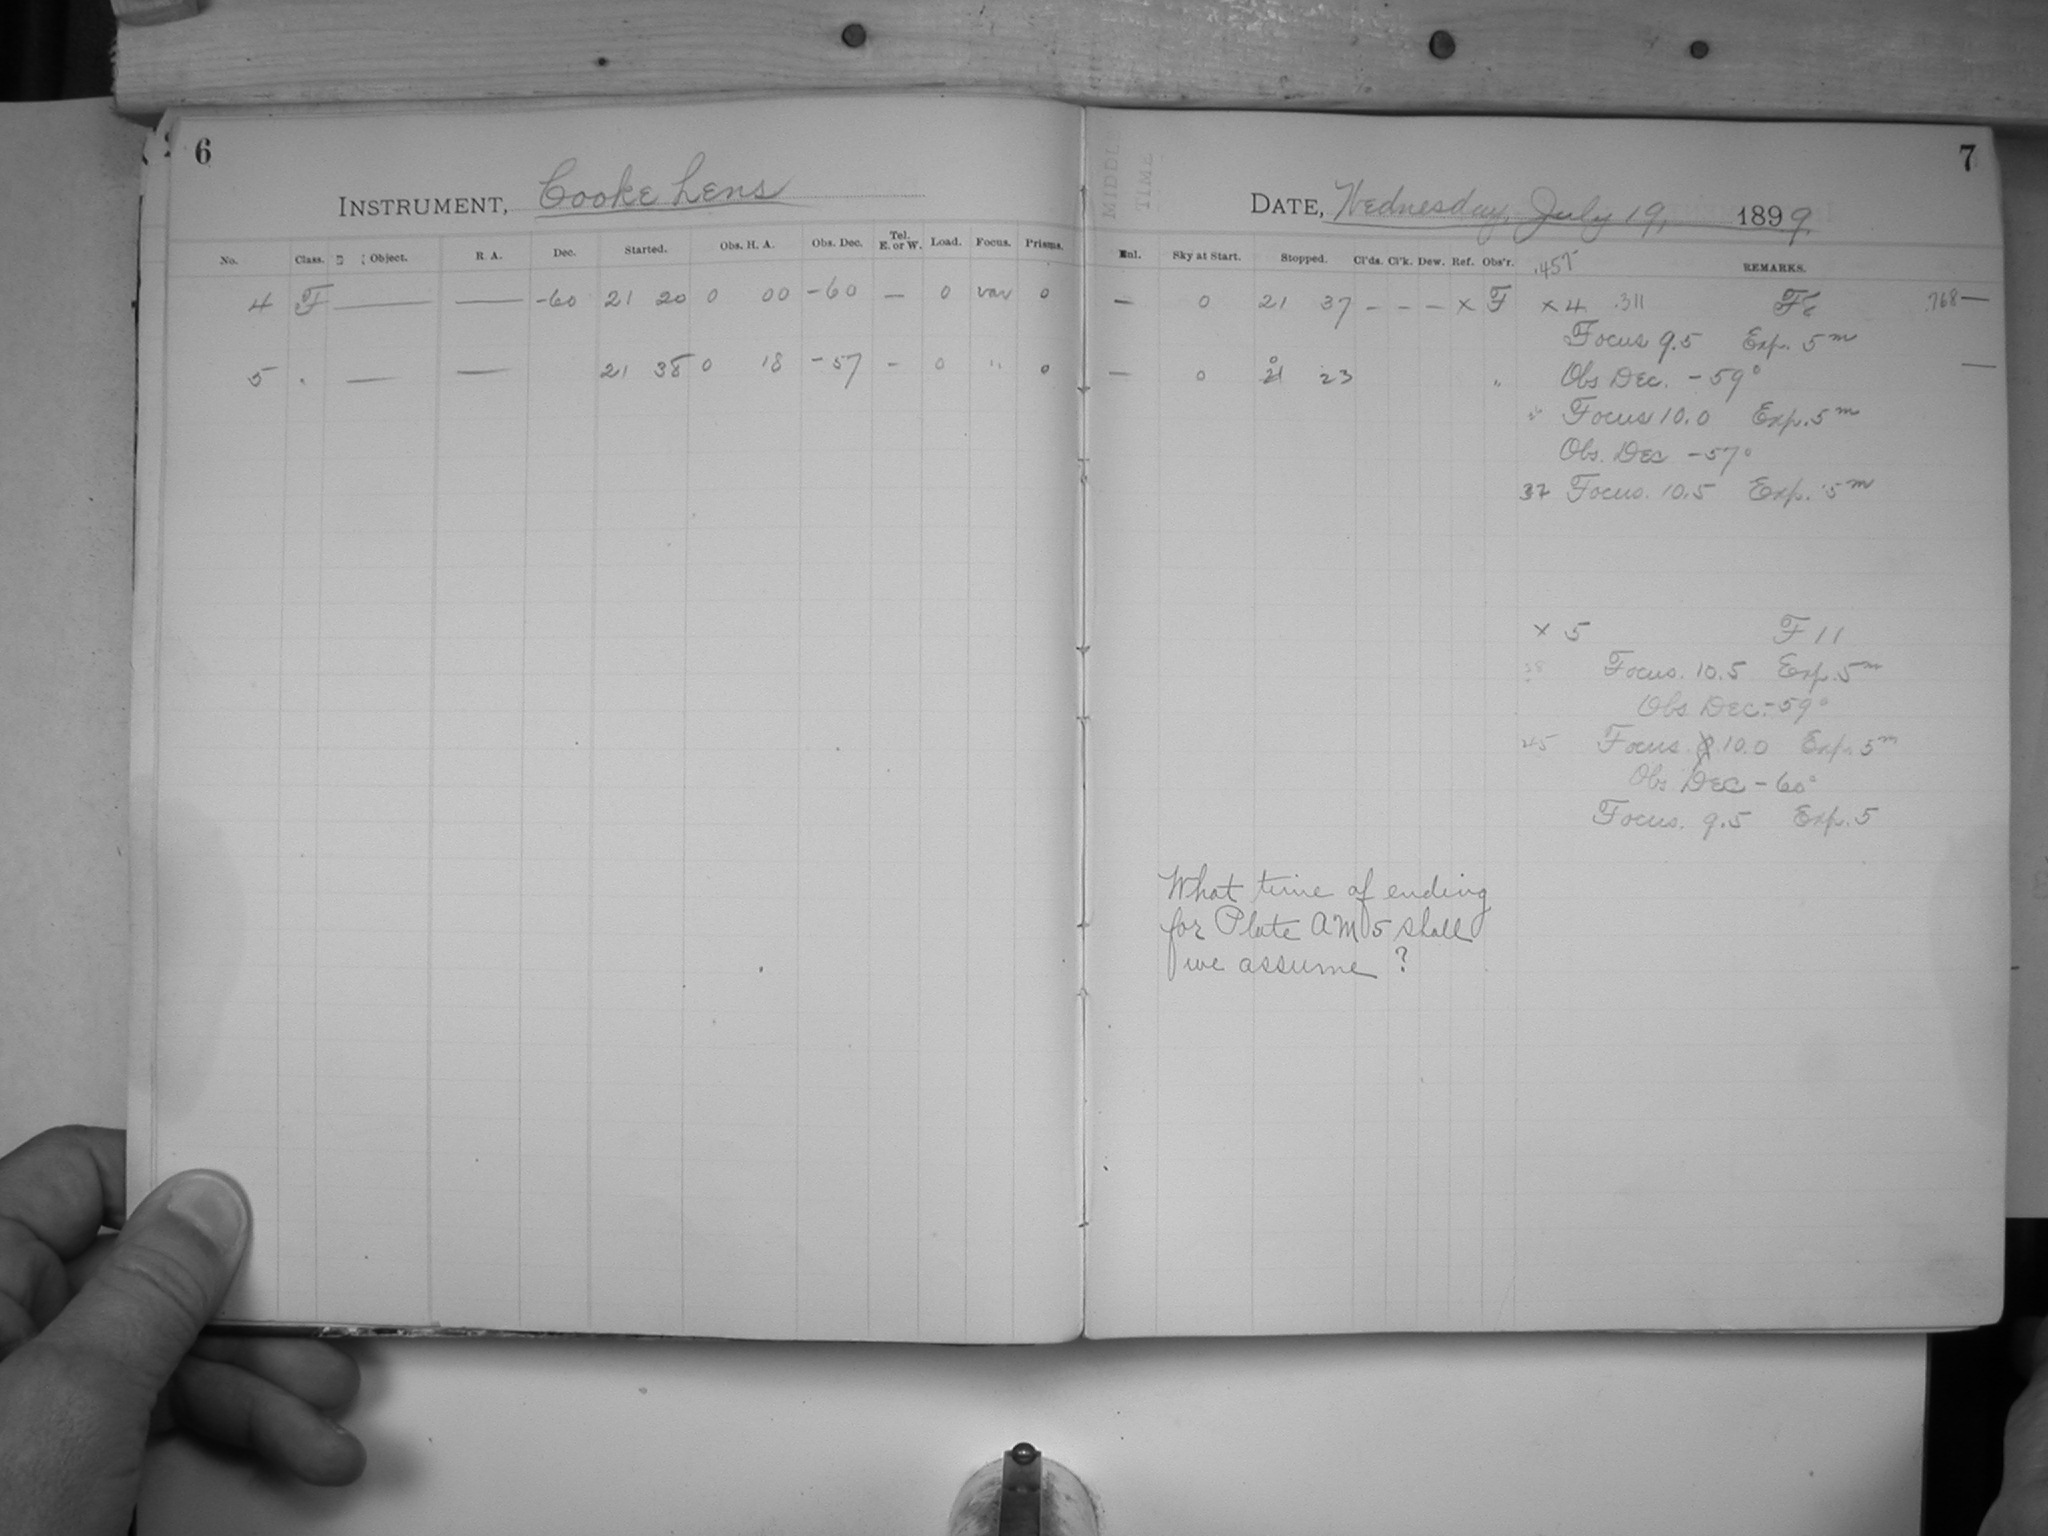 6
INSTRUMENT, Cooke Lens
No. Class. Object. R. A. Dec. Started. Obs. H. A. Obs. Dec. Tel. E. or W. Load. Focus. Prisms.
4 F — — -60 21 20 0 00 -60 — 0 var 0
5 — — 21 38 0 18 -57 - 0 " 0
7
MIDDL
TIME
DATE, Wednesday, July 19, 1899
Enl. Sky at Start. Stopped. Cl'ds. Cl'k. Dew. Ref. Obs'r. REMARKS.
.457
— 0 21 37 - - — x F x 4 .311 .768 —
Focus 9.5 Exp. 5m
— 0 23 " Obs Dec. -59° —
Focus 10.0 Exp. 5m
Obs. Dec -57°
37 Focus. 10.5 Exp. 5m
x 5 F 11
Focus. 10.5 Exp. 5m
Obs Dec. -59°
45 Focus. 10.0 Exp. 5m
Obs. Dec -60°
Focus. 9.5 Exp. 5
What time of ending
for Plate AM 5 shall
we assume ?